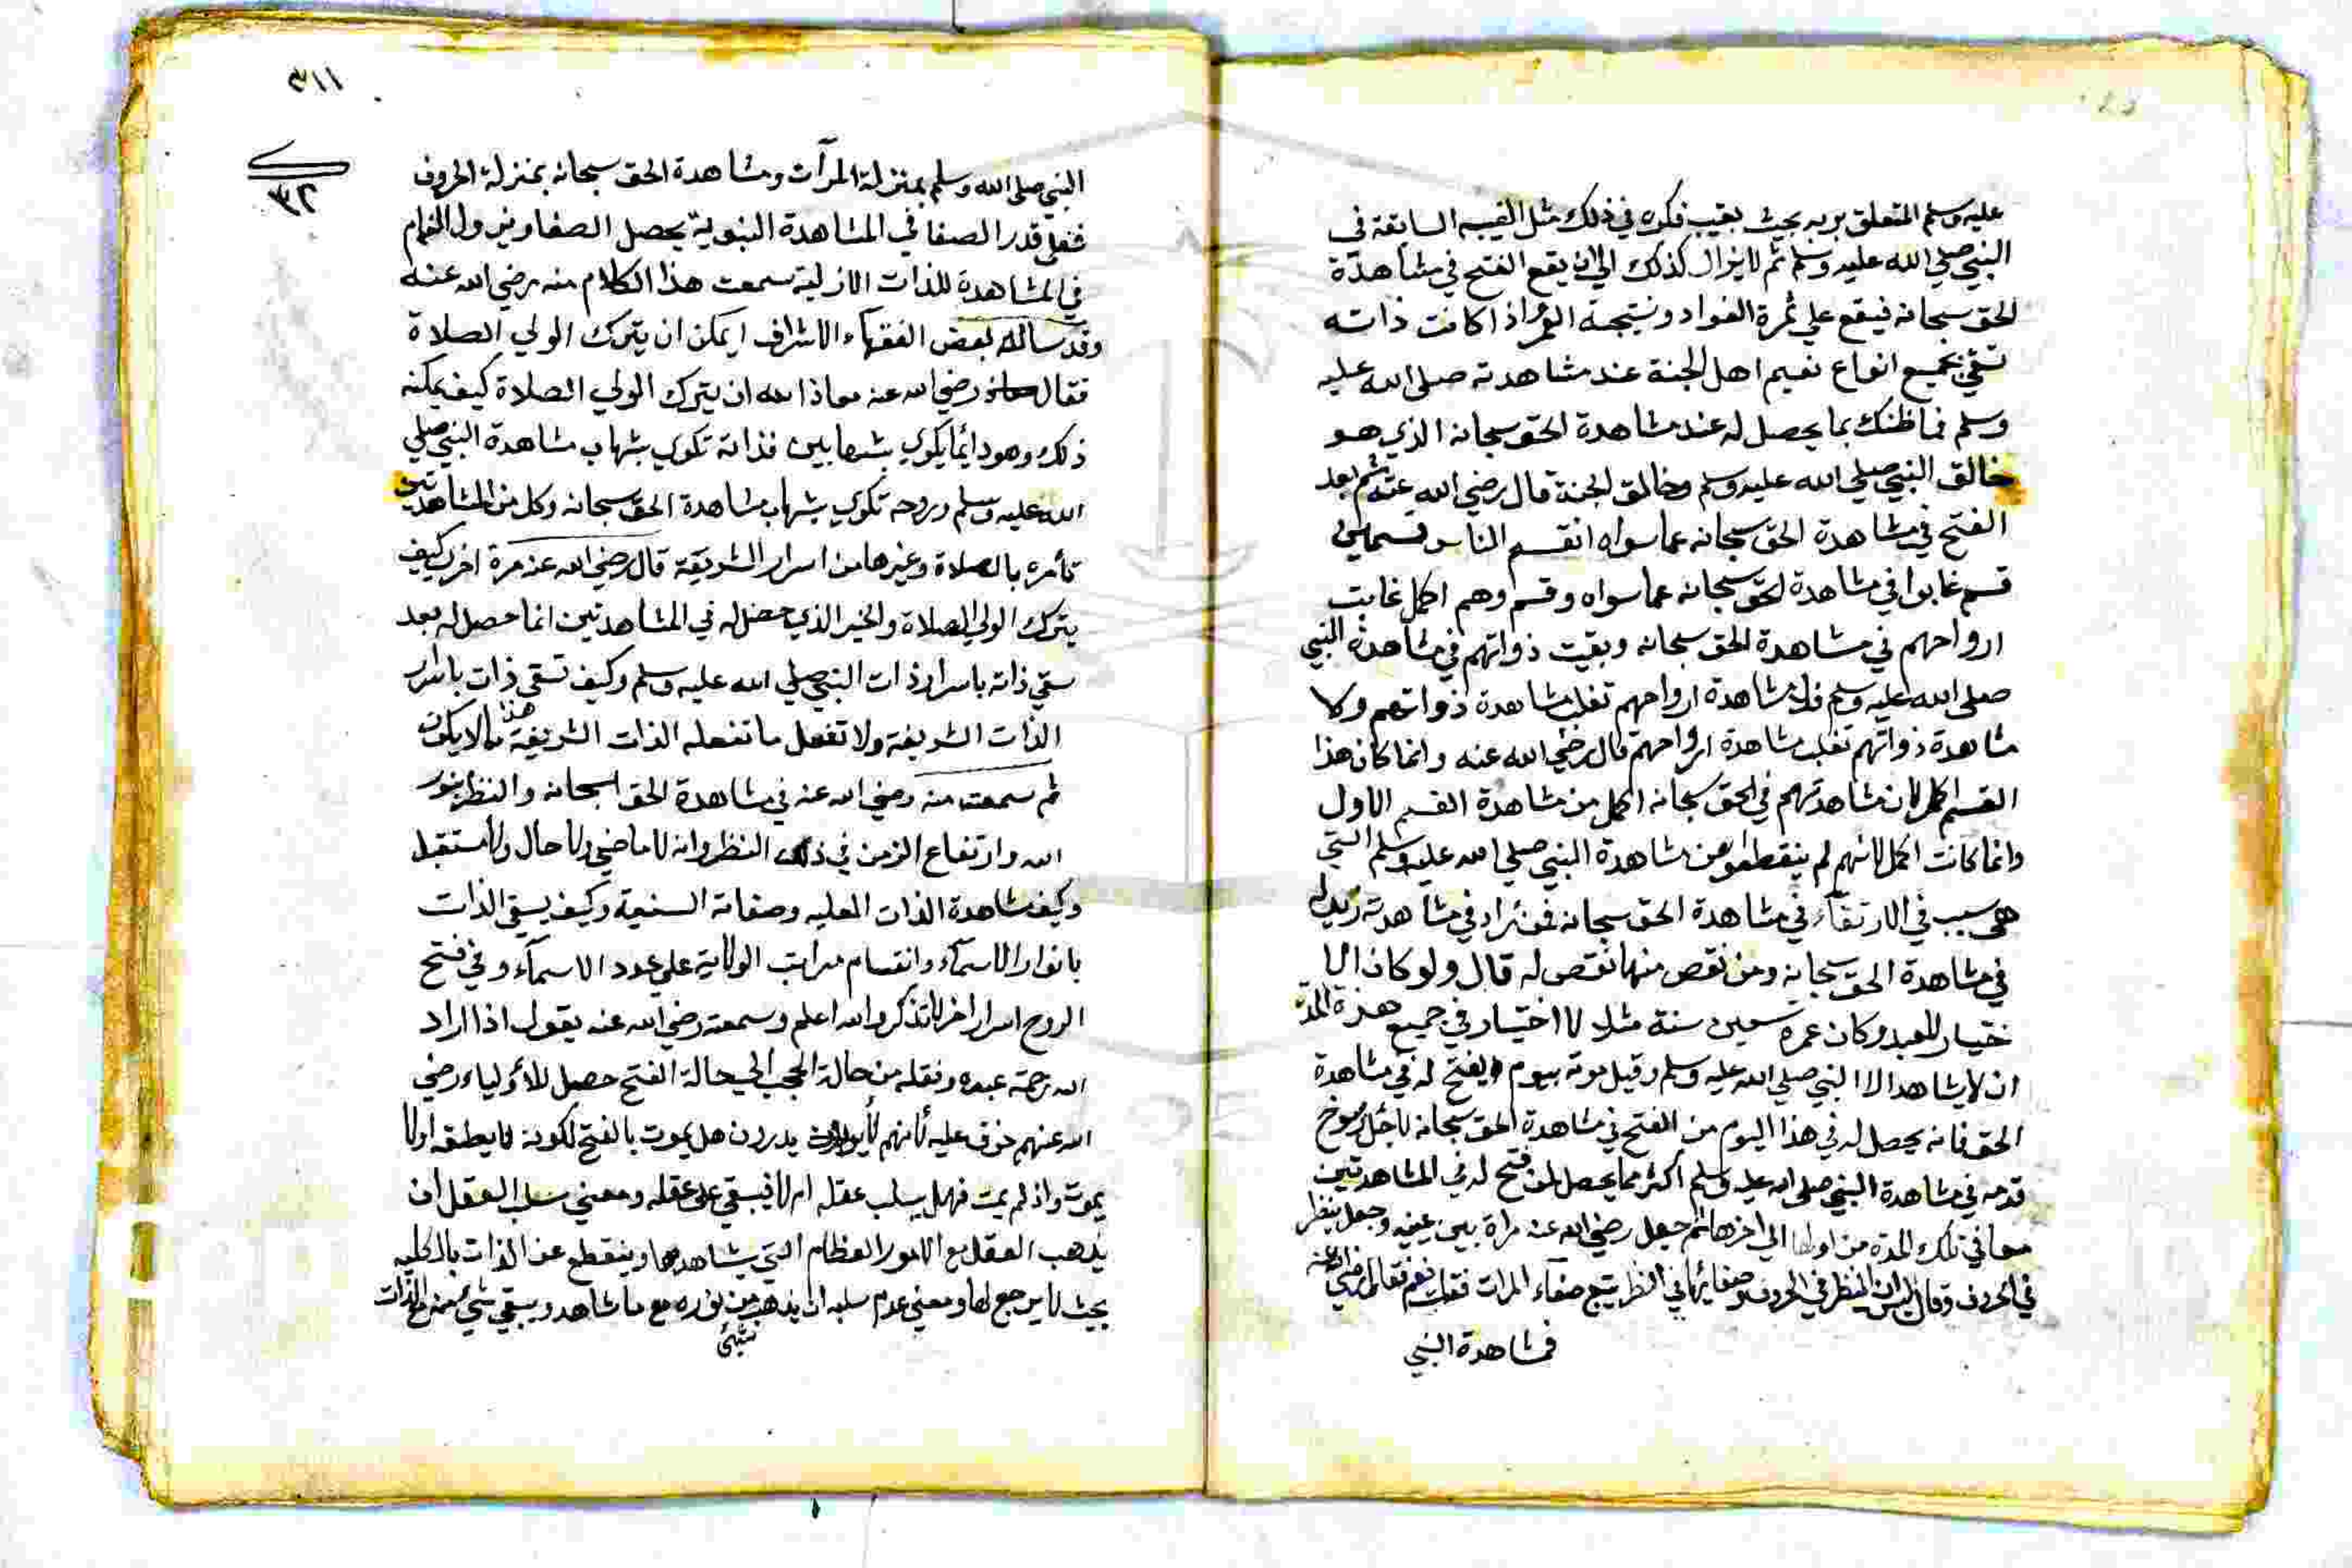 عليه وسلم المتعلق بربه بحيث يغيب فكره في ذلك مثل الغيبه السابقة في
النبي صلى الله عليه وسلم ثم لا يزال كذلك الى ان يقع الفتح في مشاهدة
الحق سبحانه فيقع على ثمرة الفواد ونتيجة العمر اذا كانت ذاته
تسقي بجميع انواع نعيم اهل الجنة عند مشاهدته صلى الله عليه
وسلم فما ظنك بما يحصل له عند مشاهدة الحق سبحانه الذي هو
خالق النبي صلي الله عليه وسلم وخالق الجنة قال رضي الله عنه ثم بعد
الفتح في مشاهدة الحق سبحانه عما سواه انقسم الناس قسمين
قسم غابوا في مشاهدة الحق سبحانه عما سواه وقسم وهم اكمل غابت
ارواحهم في مشاهدة الحق سبحانه وبقيت ذواتهم في مشاهدة النبي
صلى الله عليه وسلم فلا مشاهدة ارواحهم تغلب مشاهدة ذواتهم ولا
مشاهدة ذواتهم تغلب مشاهدة ارواحهم قال رضي الله عنه وانما كان هذا
القسم اكمل لان مشاهدتهم في الحق سبحانه اكمل من مشاهدة القسم الاول
وانما كانت اكمل لانهم لم ينقطعوا عن مشاهدة النبي صلي الله عليه وسلم التي
هي سبب في الارتقآء في مشاهدة الحق سبحانه فمن زاد في مشاهدته زيد له
في مشاهدة الحق سبحانه ومن نقص منها نقص له قال ولو كان الا
ختيار للعبد وكان عمره تسعين سنة مثلا لا اختار في جميع هذه المدة
ان لا يشاهد الا النبي صلي الله عليه وسلم وقبل موته بيوم يفتح له في مشاهدة
الحق فانه يحصل له في هذا اليوم من الفتح في مشاهدة الحق سبحانه لاجل رسوخ
قدمه في مشاهدة النبي صلى الله عليه وسلم اكثر مما يحصل لمن فتح له في المشاهدتين
معا في تلك المدة من اولها الى اخرها ثم جعل رضي الله عنه مراة بين عينيه وجعل ينظر
في الحروف وقال اليس ان النظر في الحروف وصفايرها في النظر يتبع صفآء المرات فقلت نعم فقال رضي الله عنه
فمشاهدة النبي
٣١١
٣٢
النبي صلى الله وسلم بمنزلة المرآت ومشاهدة الحق سبحانه بمنزلة الحروف
فعلى قدر الصفا في المشاهدة النبوية يحصل الصفا ويزول الغمام
في المشاهدة للذات الازلية سمعت هذا الكلام منه رضي الله عنه
وقد ساله بعض الفقهاء الاشراف ايمكن ان يترك الولي الصلاة
فقال رضي الله عنه معاذ الله ان يترك الولي الصلاة كيف يمكنه
ذلك وهو دايما يكوي بشهابين فذاته تكوي بشهاب مشاهدة النبي صلي
الله عليه وسلم وروحه تكوي بشهاب مشاهدة الحق سبحانه وكل من المشاهدتين
تأمره بالصلاة وغيرها من اسرار الشريعة قال رضي الله عنه مرة اخرى كيف
يترك الولي الصلاة والخير الذي حصل له في المشاهدتين انما حصل له بعد
سقي ذاته باسرار ذات النبي صلي الله عليه وسلم وكيف تسقي ذات باسرار
الذات الشريفة ولا تفعل ما تفعله الذات الشريفة هذا مما لا يكون
ثم سمعت منه رضي الله عنه في مشاهدة الحق سبحانه والنظر بنور
الله وارتفاع الزمن في ذلك النظر وانه لا ماضي ولا حال ولا مستقبل
وكيف مشاهدة الذات العليه وصفاته السنية وكيف يسقي الذات
بانوار الاسمآء وانقسام مراتب الولاية علي عدد الاسمآء وفي فتح
الروح اسرار اخر لا تذكر والله اعلم وسمعته رضي الله عنه يقول اذا اراد
الله رحمة عبده ونقله من حالة الحجب الي حالة الفتح حصل للأولياء رضي
الله عنهم خوف عليه لانهم لا يدرون هل يموت بالفتح لكونه لا يطيقه او لا
يموت واذ لم يمت فهل يسلب عقله ام لا فيبقي على عقله ومعني سلب العقل ان
يذهب العقل مع الامور العظام التي يشاهدها وينقطع عن الذات بالكليه
بحيث لا يرجع لها ومعني عدم سلبه ان يذهب من نوره مع ما شاهد ويبقي شيء منه مع الذات
شيء